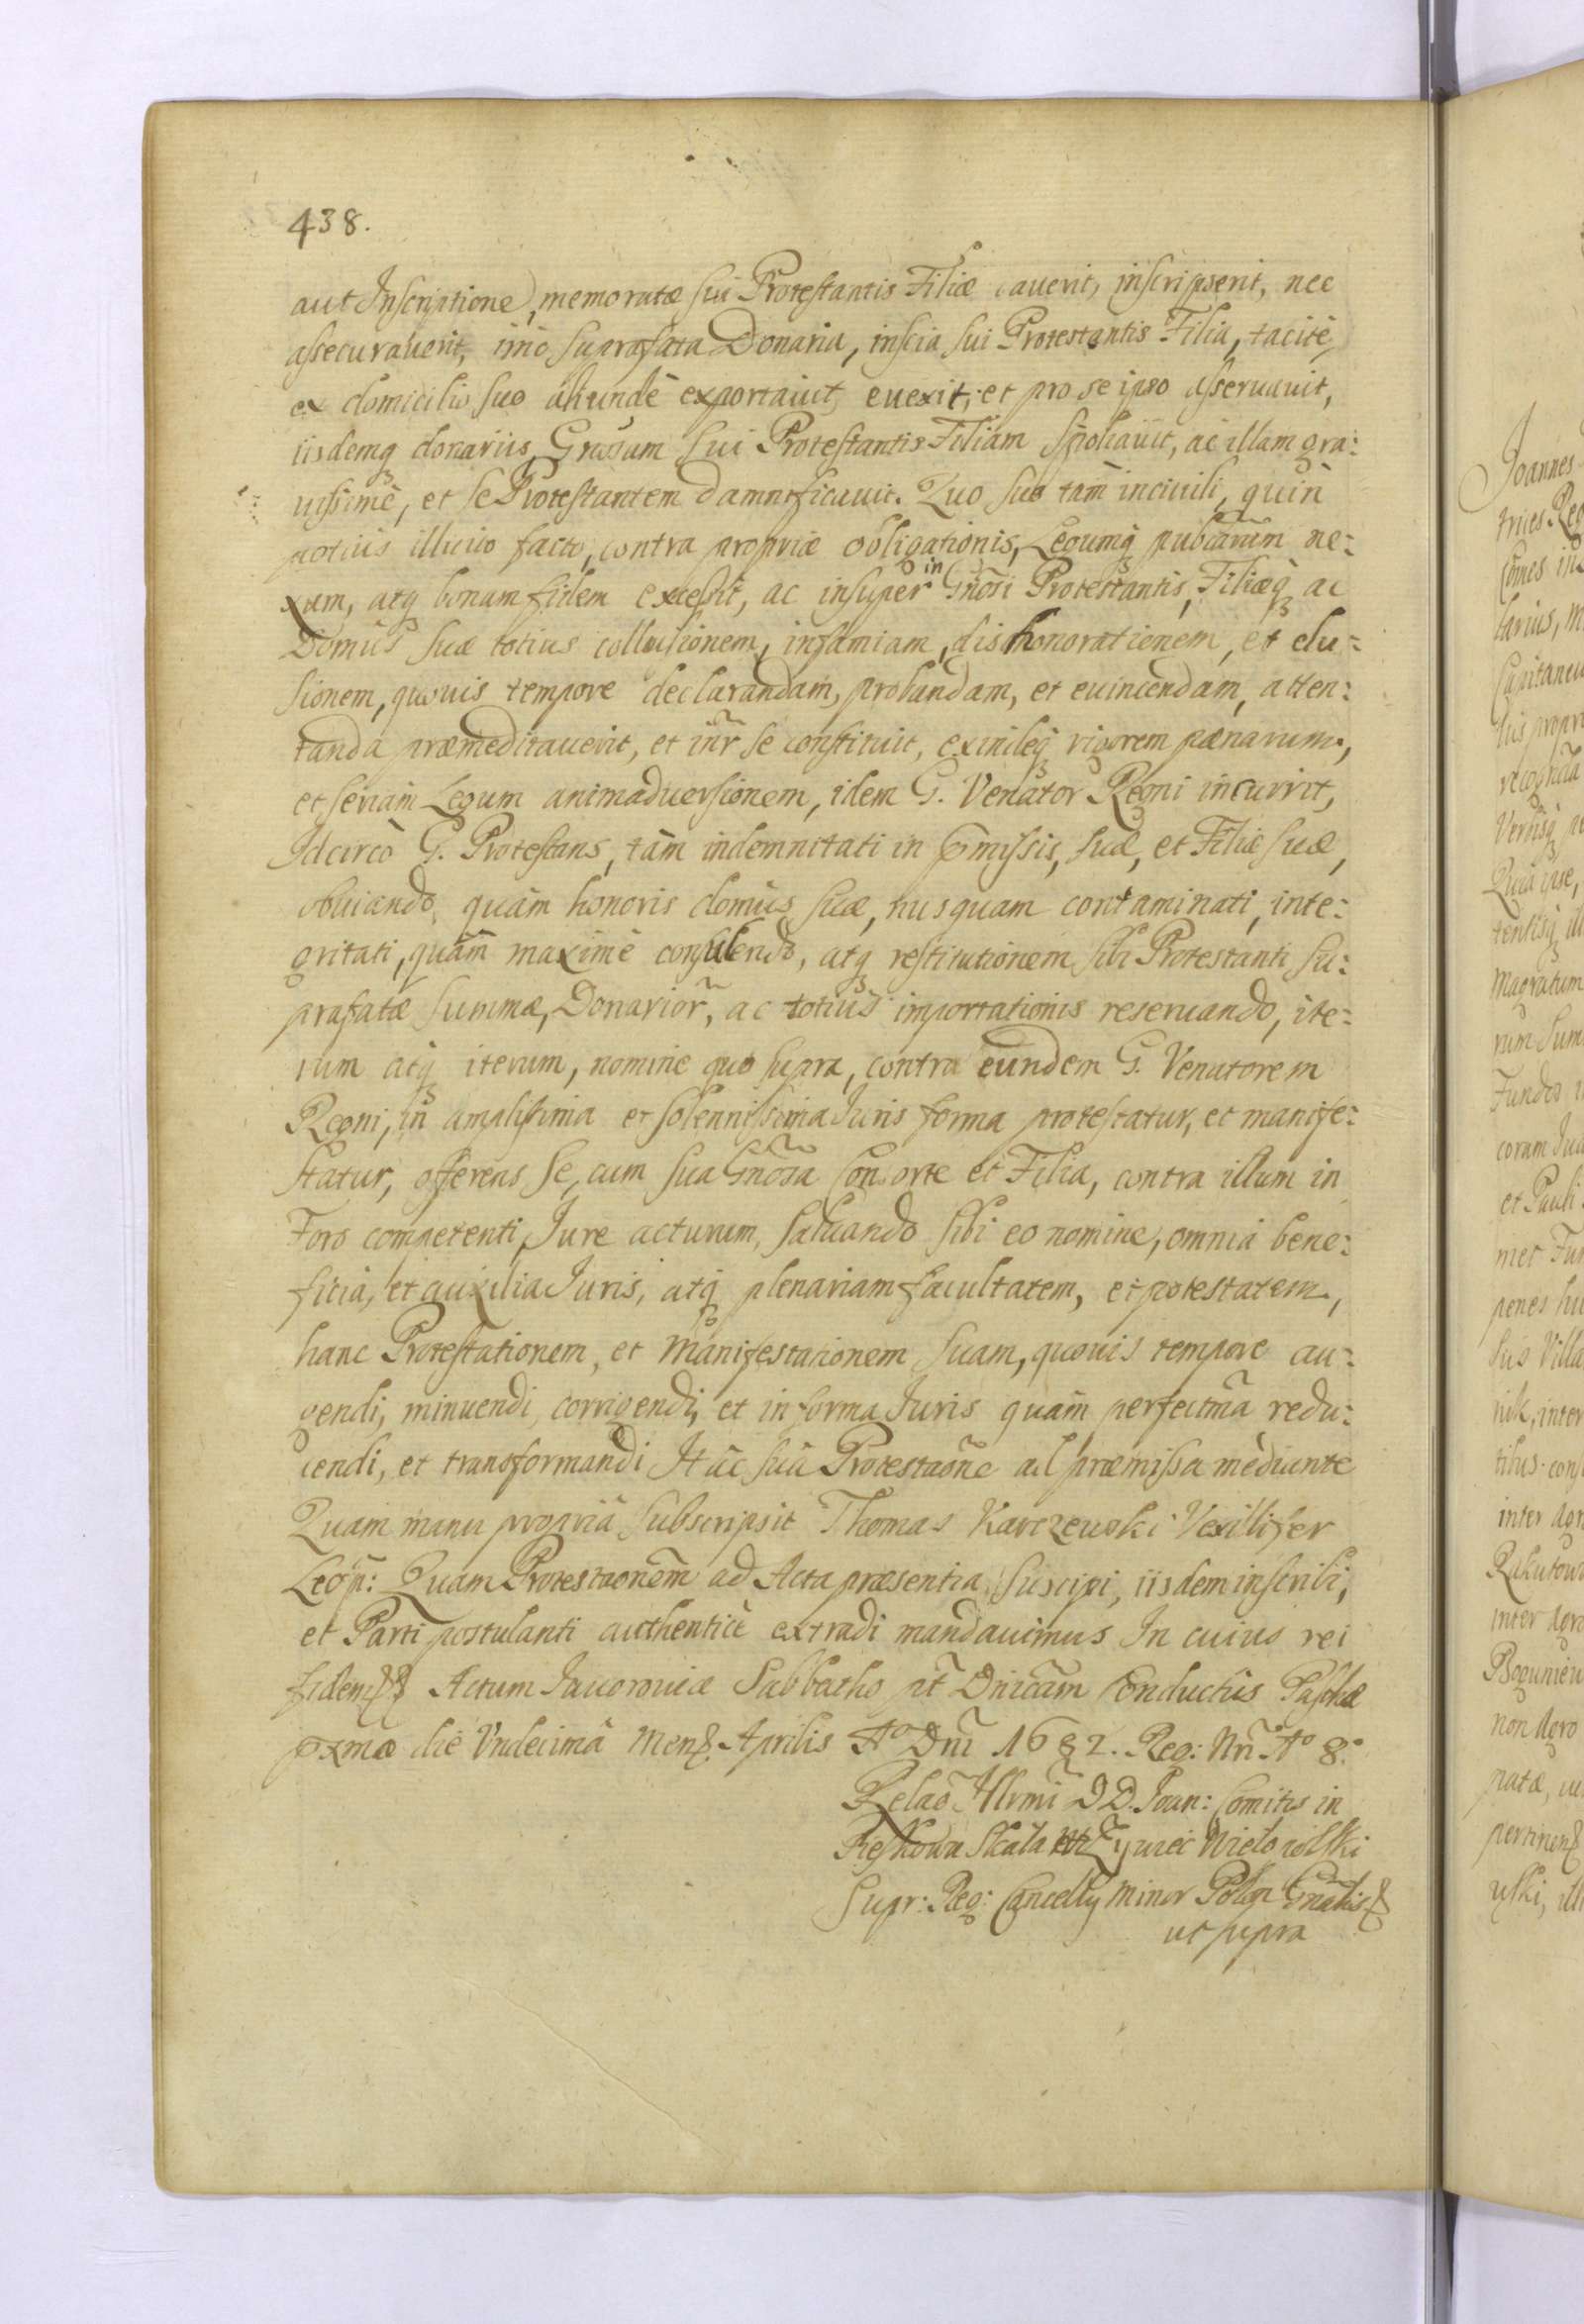 438.
aut Inscriptione, memoratæ sui Protestantis Filiæ cauerit, inscripserit, nec
assecurauerit, imò suprafata Donaria, inscia sui Protestantis Filia, tacitè,
ex domicilio suo aliundè exportauit, euexit, et pro se ipso asseruauit,
iisdemq donariis, Grosam sui Protestantis Filiam spoliauit, ac illam gra:
uissimè, et se Protestantem damnificauit. Quo suo tam inciuili, quin
potius illicito facto, contra propriæ obligationis, Legumq publicarum ne:
xum, atq bonam fidem excessit, ac insuper in Gnosi Protestantis, Filiæq ac
Domus suæ totius collusionem, infamiam, dishonorationem, et elu:
sionem, quouis tempore declarandam, probandam, et euincendam, atten:
tanda præmeditauerit, et inr se constituit, exindeq rigorem pænarum,
et seriam Legum animaduersionem, idem G. Venator Regni incurrit,
Idcircò G. Protestans, tam indemnitati in pmissis, suæ, et Filiæ suæ,
obuiando, quàm honoris domus suæ, nusquam contaminati, inte:
gritati, quàm maximè consulendo, atq restitutionem sibi Protestanti su:
prafatæ summæ, Donarior, ac totius importationis reseruando, ite:
rum atq iterum, nomine quo supra, contra eundem G. Venatorem
Regni, in amplissima et solennissima Iuris forma protestatur, et manife:
statur, offerens se, cum sua Gnosa Consorte et Filia, contra illum in
Foro competenti, Jure acturum, saluando sibi eo nomine, omnia bene:
ficia, et auxilia Iuris, atq plenariam facultatem, et potestatem,
hanc Protestationem, et Manifestationem suam, quouis tempore au:
gendi, minuendi, corrigendi, et in forma Iuris quàm perfectma redu:
cendi, et transformandi Hac suâ Protestaone ad præmissa mediante
Quam manu propriâ subscripsit Thomas Karczewski Vexillifer
Leop: Quam Protestaonem ad Acta præsentia suscipi, iisdem inscribi,
et Parti postulanti authenticè extradi mandauimus In cuius rei
fidem Actum Iauorouiæ Sabbatho pt Dnicam Conductus Paschæ
pxmæ die Vndecimâ Mens Aprilis Ao Dni 1682. Reg: Nri Ao 8.
Relao Illrmi D D. Joan: Comitis in
Pieskowa Skała et Zywiec Wielopolski
Supr: Reg: Cancelly Minor Polon Gnalis
ut supra